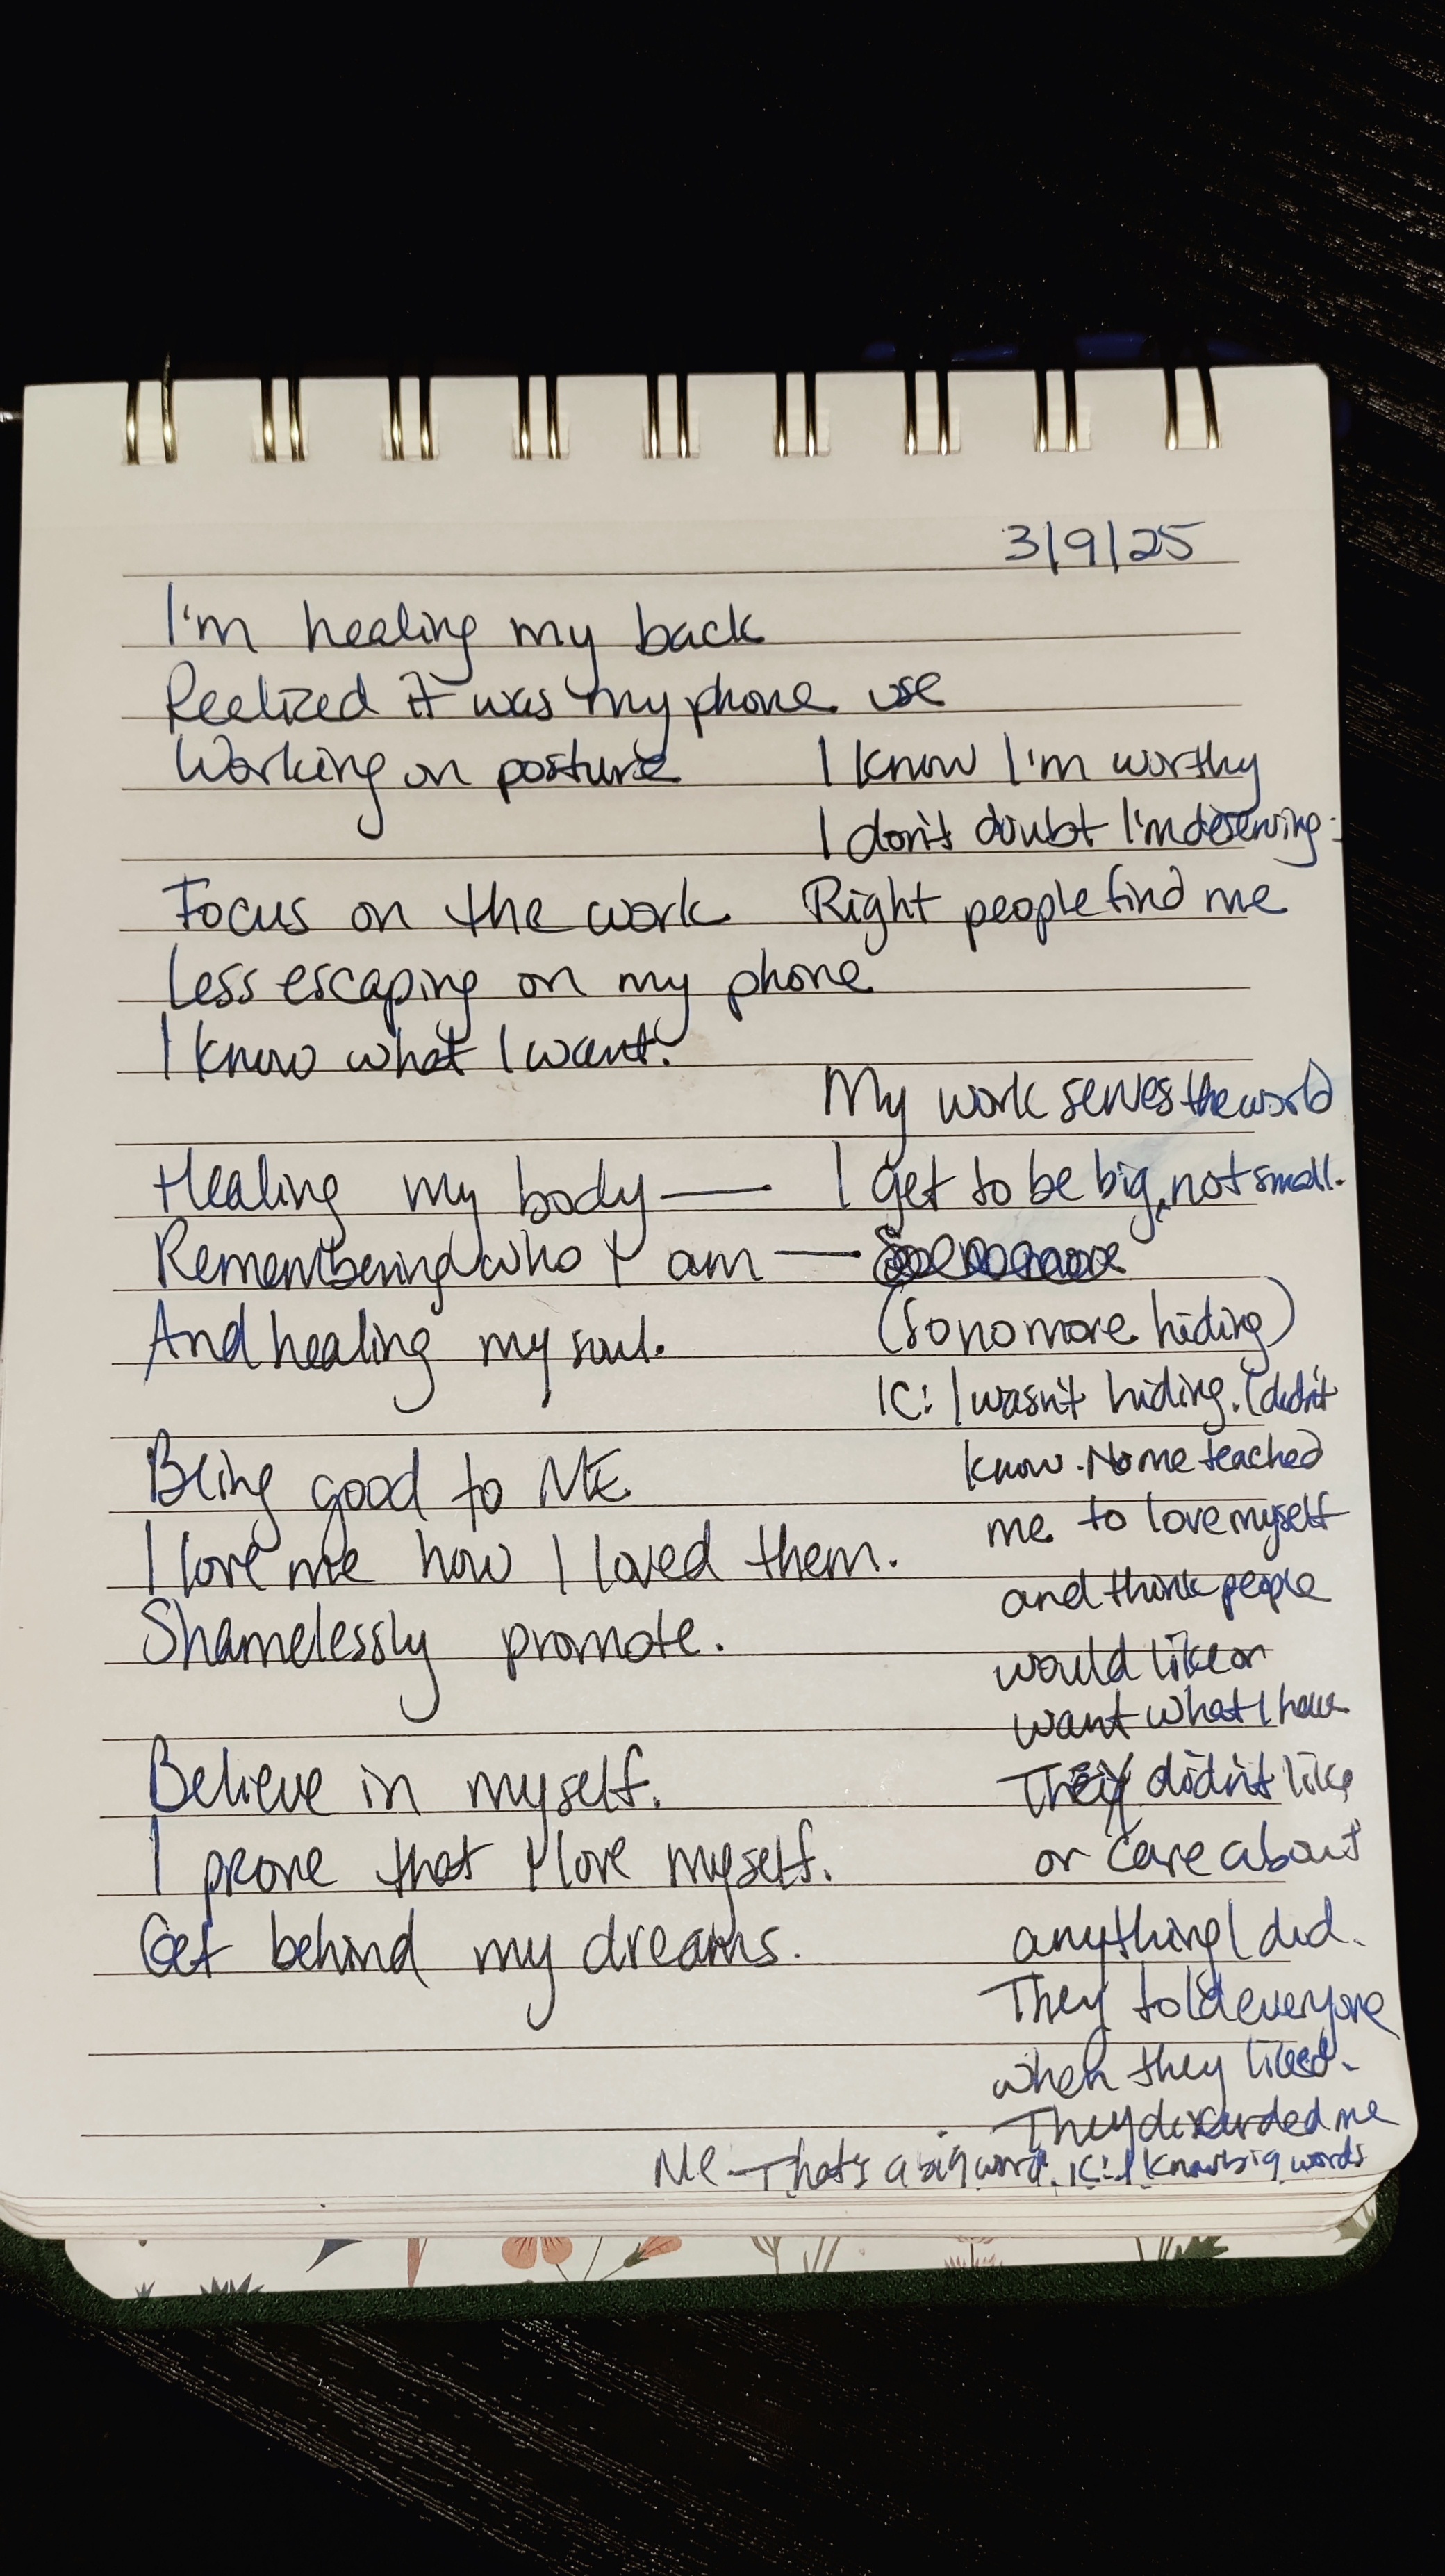 3/9/25
I'm healing my back
Realized it was my phone use
Working on posture
I know I'm worthy
I don't doubt I'm deserving.
Right people find me
Focus on the work
Less escaping on my phone
I know what I want.
My work serves the world
I get to be big, not small.
(So no more hiding)
Healing my body —
Remembering who I am —
And healing my soul.
IC: I wasn't hiding. I didn't
know. No one teached
me to love myself
and think people
would like or
want what I have
They didn't like
or care about
anything I did.
They told everyone
when they liked.
They discarded me
Me - That's a big word. IC: I know big words
Being good to ME
I love me how I loved them.
Shamelessly promote.
Believe in myself.
I prove that I love myself.
Get behind my dreams.